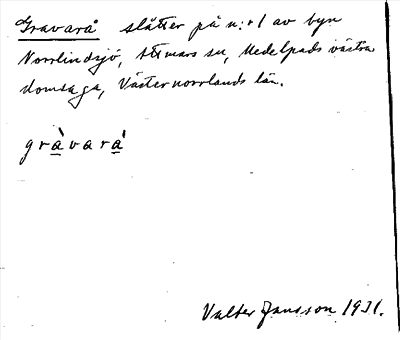 Gravarå slåtter på n:r 1 av byn
Norrlindsjö, Attmars sn, Medelpads västra
domsaga, Västernorrlands län.
gràvará
Valter Jansson 1931.